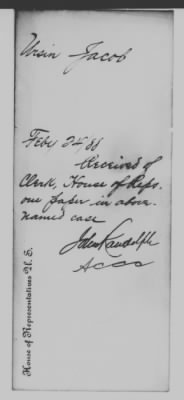 Ursin Jacob
Feby 24/88
Received of
Clerk, House of Reps.
one paper in above-
named case
John Randolph
A C C C
House of Representatives U. S.